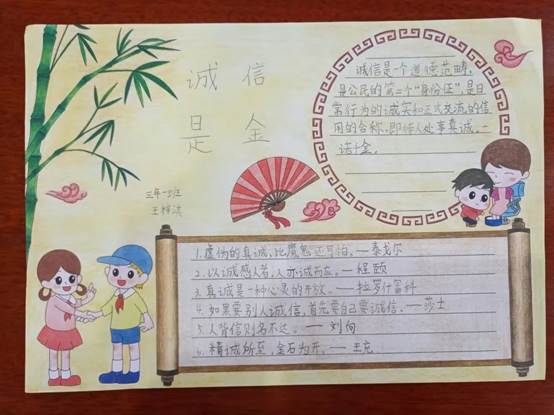 诚信
是金
三年一班
王梓洪
诚信是一个道德范畴,
是公民的第二个“身份证”,是日
常行为的诚实和正式交流的信
用的合称,即待人处事真诚,一
诺千金。
1.虚伪的真诚,比魔鬼还可怕。——泰戈尔
2.以诚感人者,人亦诚而应。——程颐
3.真诚是一种心灵的开放。——拉罗什富科
4.如果要别人诚信,首先要自己要诚信。——莎士
5.人背信则名不达。——刘向
6.精诚所至,金石为开。——王充